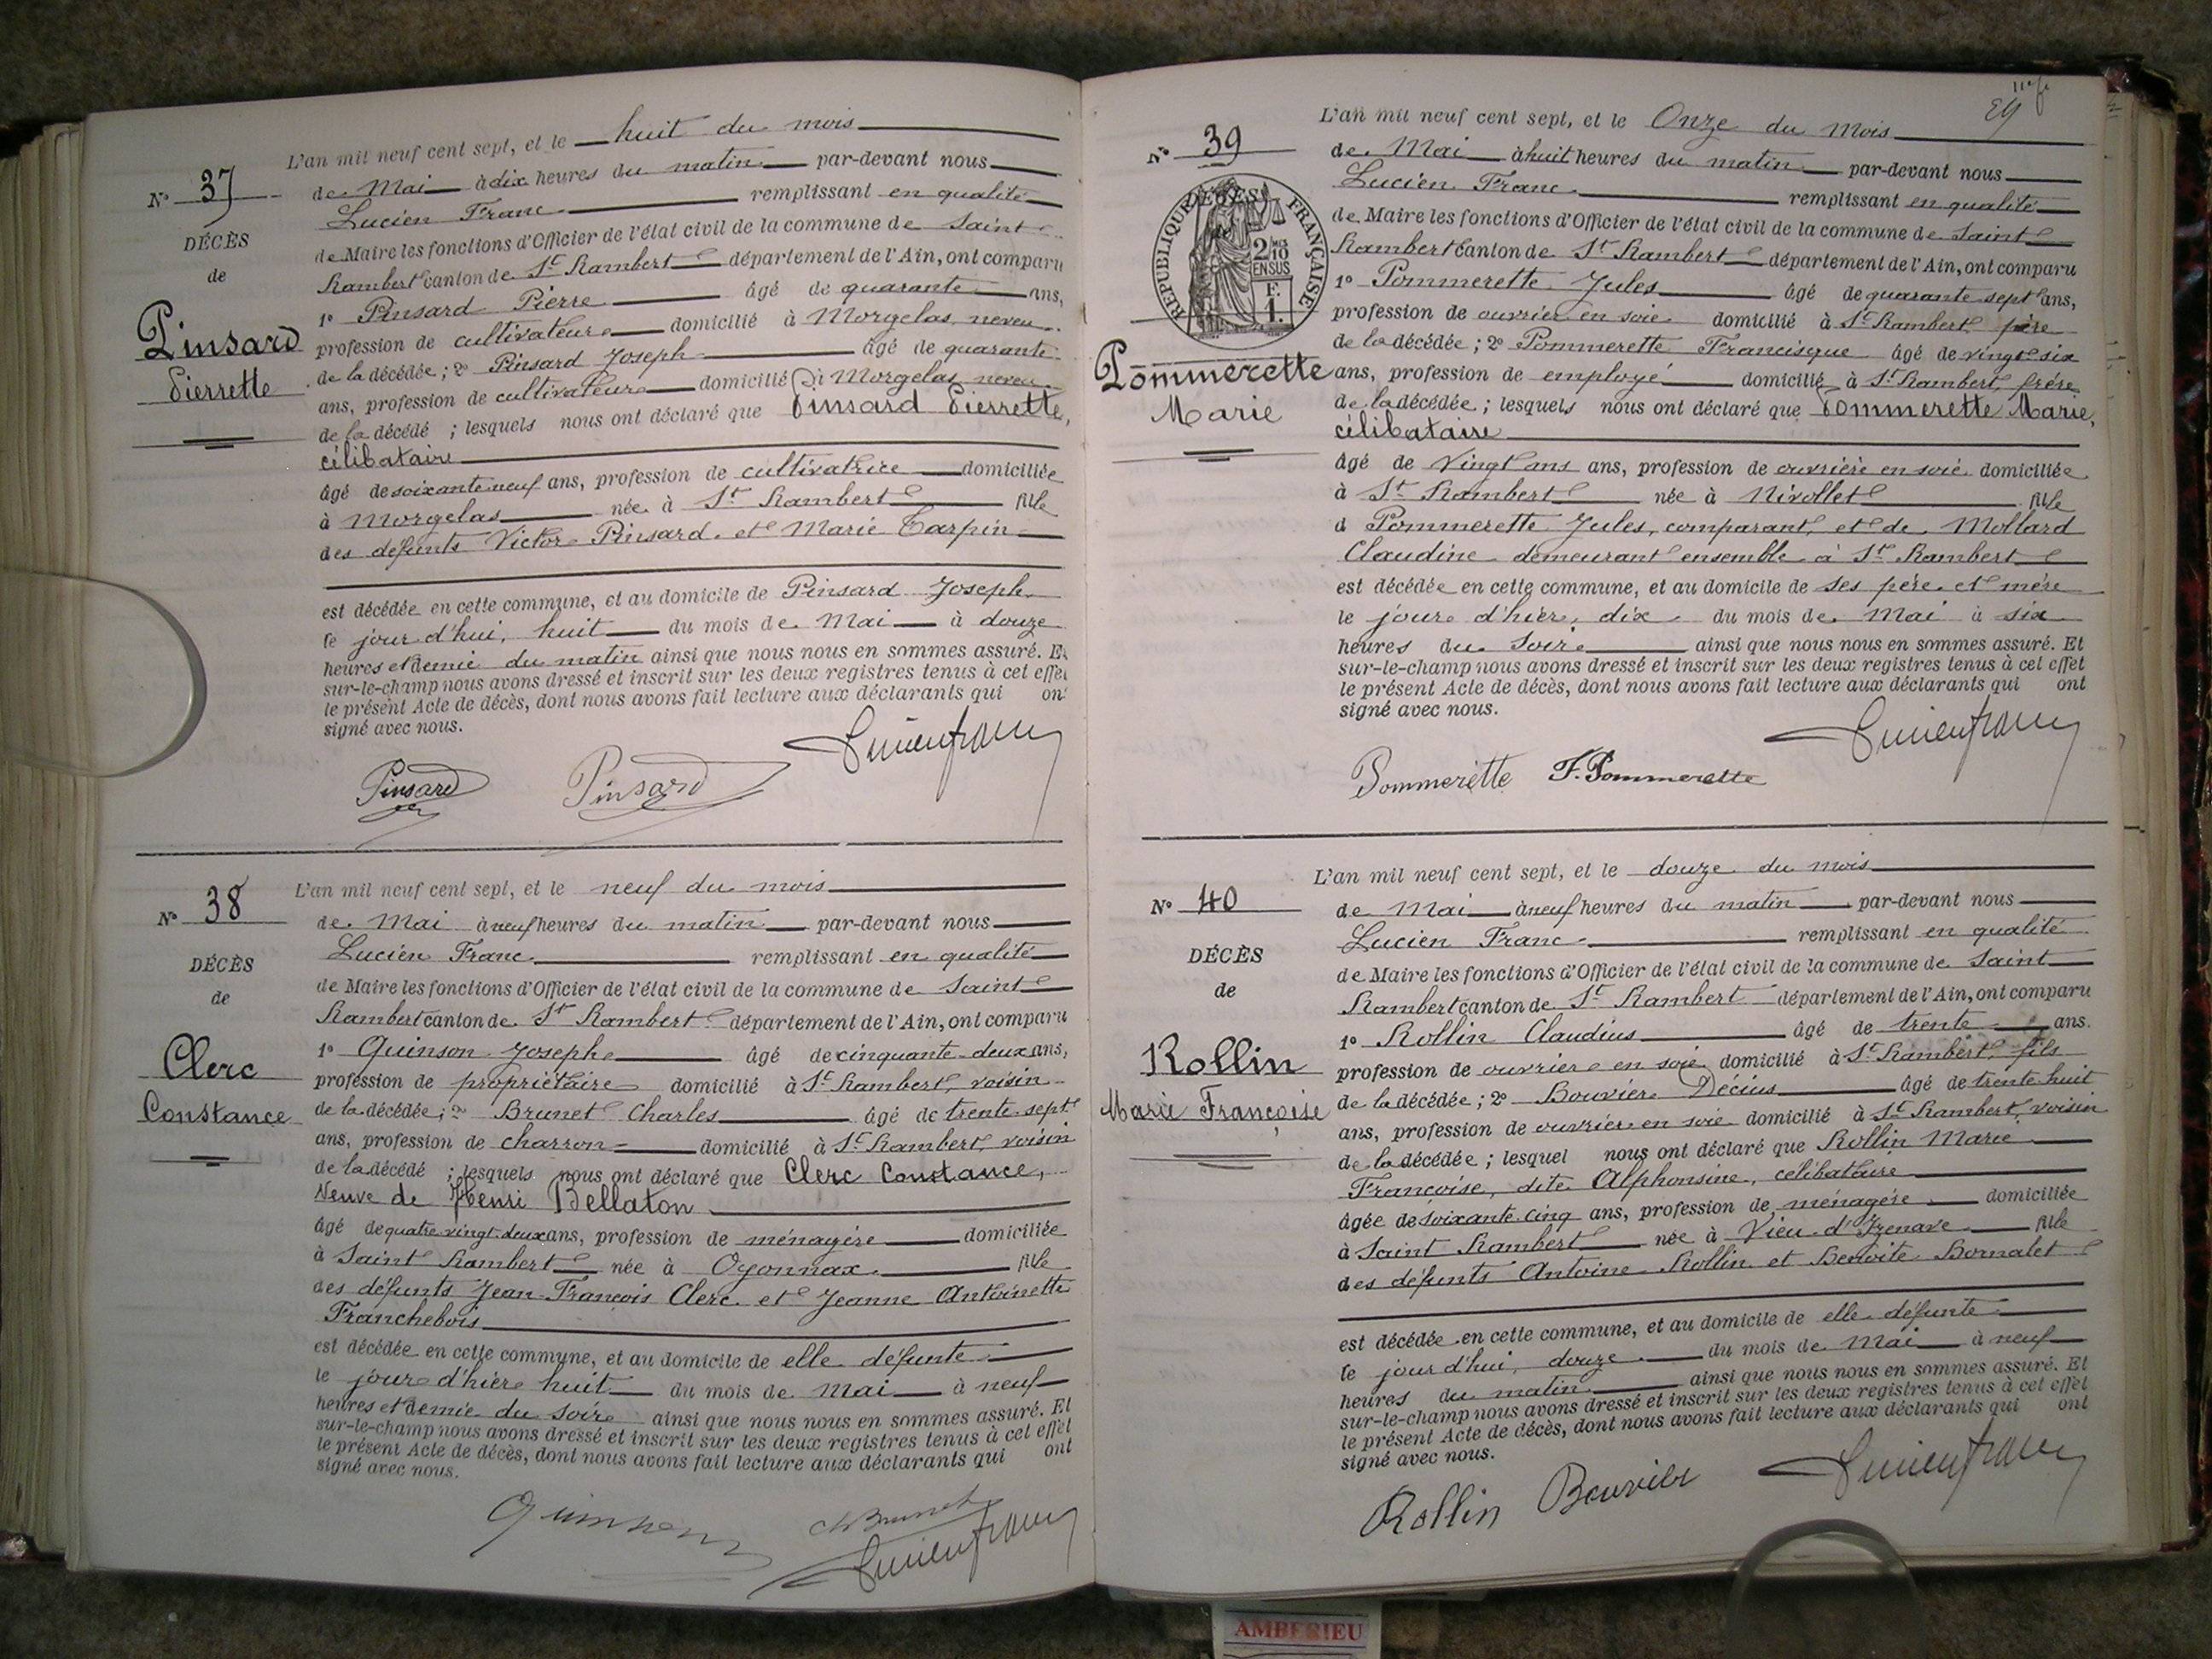 L'an mil neuf cent sept, et le huit du mois
N° 37
de Mai à dix heures du matin par-devant nous
Lucien Franc remplissant en qualité
DÉCÈS
de
de Maire les fonctions d'Officier de l'état civil de la commune de Saint
Rambert canton de St Rambert département de l'Ain, ont comparu
1° Pinsard Pierre âgé de quarante ans,
Pinsard
Pierrette
profession de cultivateur domicilié à Morgelas, neveu
de la décédée ; 2° Pinsard Joseph âgé de quarante
ans, profession de cultivateur domicilié à Morgelas, neveu
de la décédé ; lesquels nous ont déclaré que Pinsard Pierrette,
célibataire
âgé de soixante neuf ans, profession de cultivatrice domiciliée
à Morgelas née à St Rambert fille
des défunts Victor Pinsard et Marie Tarpin
est décédée en cette commune, et au domicile de Pinsard Joseph
le jour d'hui, huit du mois de Mai à douze
heures et demie du matin ainsi que nous nous en sommes assuré. Et
sur-le-champ nous avons dressé et inscrit sur les deux registres tenus à cet effet
le présent Acte de décès, dont nous avons fait lecture aux déclarants qui ont
signé avec nous.
Lucien Franc
Pinsard Pinsard
L'an mil neuf cent sept, et le neuf du mois
N° 38
de Mai à neuf heures du matin par-devant nous
Lucien Franc remplissant en qualité
DÉCÈS
de
de Maire les fonctions d'Officier de l'état civil de la commune de Saint
Rambert canton de St Rambert département de l'Ain, ont comparu
Clerc
Constance
1° Quinson Joseph âgé de cinquante-deux ans,
profession de propriétaire domicilié à St Rambert, voisin
de la décédée ; 2° Brunet Charles âgé de trente sept
ans, profession de charron domicilié à St Rambert, voisin
de la décédé ; lesquels nous ont déclaré que Clerc Constance,
Veuve de Henri Bellaton
âgé de quatre vingt-deux ans, profession de ménagère domiciliée
à Saint Rambert née à Oyonnax fille
des défunts Jean-François Clerc et Jeanne Antoinette
Franchebois
est décédée en cette commune, et au domicile de elle défunte
le jour d'hier huit du mois de Mai à neuf
heures et demie du soir ainsi que nous nous en sommes assuré. Et
sur-le-champ nous avons dressé et inscrit sur les deux registres tenus à cet effet
le présent Acte de décès, dont nous avons fait lecture aux déclarants qui ont
signé avec nous.
Quinson Ch Brunet
Lucien Franc
L'an mil neuf cent sept, et le Onze du Mois
N° 39
de Mai à huit heures du matin par-devant nous
Lucien Franc remplissant en qualité
DÉCÈS
RÉPUBLIQUE FRANÇAISE
2/10
EN SUS
F.
1.
de Maire les fonctions d'Officier de l'état civil de la commune de Saint
Rambert Canton de St Rambert département de l'Ain, ont comparu
1° Pommerette Jules âgé de quarante sept ans,
profession de ouvrier en soie domicilié à St Rambert père
de la décédée ; 2° Pommerette Francisque âgé de vingt six
Pommerette
Marie
ans, profession de employé domicilié à St Rambert, frère
de la décédée ; lesquels nous ont déclaré que Pommerette Marie,
célibataire
âgé de vingt ans ans, profession de ouvrière en soie domiciliée
à St Rambert née à Nivollet fille
d Pommerette Jules, comparant, et de Mollard
Claudine demeurant ensemble à St Rambert
est décédée en cette commune, et au domicile de ses père et mère
le jour d'hier, dix du mois de Mai à six
heures du soir ainsi que nous nous en sommes assuré. Et
sur-le-champ nous avons dressé et inscrit sur les deux registres tenus à cet effet
le présent Acte de décès, dont nous avons fait lecture aux déclarants qui ont
signé avec nous.
Lucien Franc
Pommerette F. Pommerette
L'an mil neuf cent sept, et le douze du mois
N° 40
de Mai à neuf heures du matin par-devant nous
Lucien Franc remplissant en qualité
DÉCÈS
de
de Maire les fonctions d'Officier de l'état civil de la commune de Saint
Rambert canton de St Rambert département de l'Ain, ont comparu
1° Rollin Claudius âgé de trente ans.
Rollin
Marie Françoise
profession de ouvrier en soie domicilié à St Rambert, fils
de la décédée ; 2° Bouvier Décius âgé de trente huit
ans, profession de ouvrier en soie domicilié à St Rambert, voisin
de la décédée ; lesquel nous ont déclaré que Rollin Marie
Françoise, dite Alphonsine, célibataire
âgée de soixante-cinq ans, profession de ménagère domiciliée
à Saint Rambert née à Vieu-d'Izenave fille
des défunts Antoine Rollin et Benoite Bornalet
est décédée en cette commune, et au domicile de elle défunte
le jour d'hui, douze du mois de Mai à neuf
heures du matin ainsi que nous nous en sommes assuré. Et
sur-le-champ nous avons dressé et inscrit sur les deux registres tenus à cet effet
le présent Acte de décès, dont nous avons fait lecture aux déclarants qui ont
signé avec nous.
Lucien Franc
Rollin Bouvier
AMBERIEU